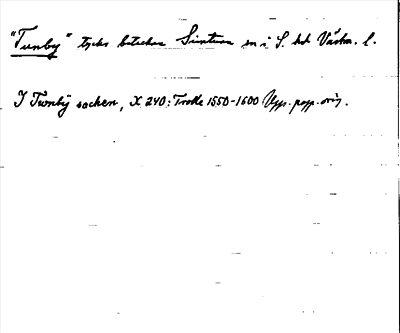 "Tunby" tycks beteckna Simtuna sn i S. hd Västm. l.
I Tunbÿ socken, X 240; Trolle 1550-1600 Upps. papp. orig.